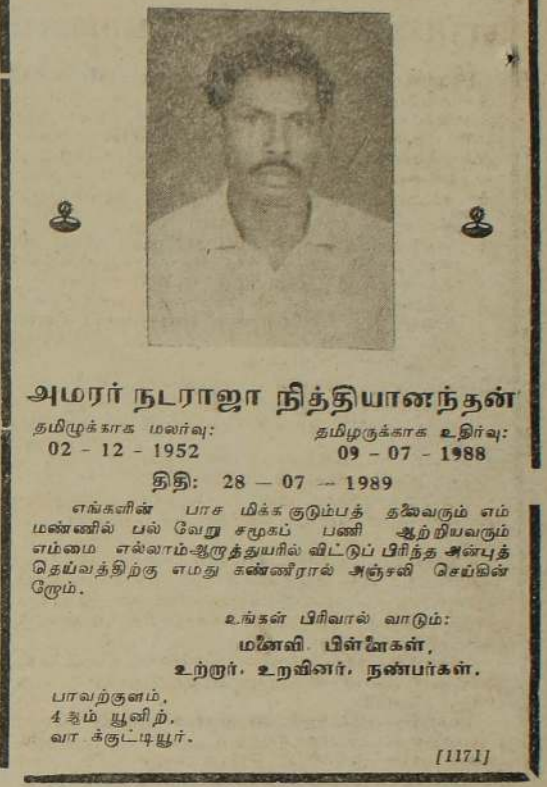 அமரர் நடராஜா நித்தியானந்தன்
தமிழுக்காக மலர்வு: தமிழருக்காக உதிர்வு:
02 - 12 - 1952 09 - 07 - 1988
திதி: 28 — 07 — 1989
எங்களின் பாச மிக்க குடும்பத் தலைவரும் எம்
மண்ணில் பல் வேறு சமூகப் பணி ஆற்றியவரும்
எம்மை எல்லாம்ஆழுத்துயரில் விட்டுப் பிரிந்த அன்புத்
தெய்வத்திற்கு எமது கண்ணீரால் அஞ்சலி செய்கின்
றோம்.
உங்கள் பிரிவால் வாடும்:
மனைவி. பிள்ளைகள்,
உற்றார். உறவினர். நண்பர்கள்.
பாவற்குளம்,
4 ஆம் யூனிற்,
வா க்குட்டியூர்.
[1171]